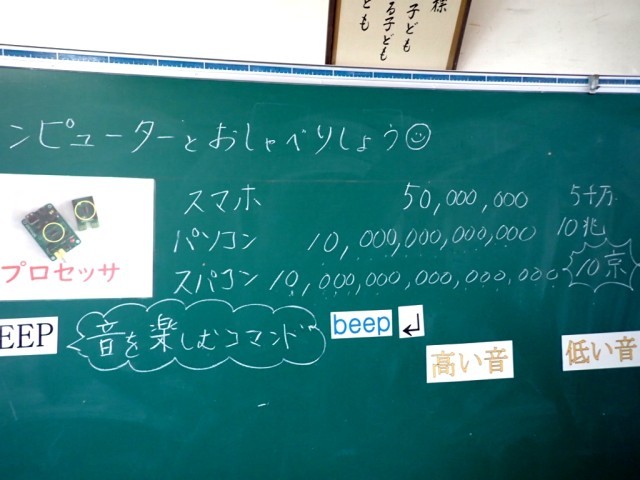 様
子ども
る子ども
ども
ンピューターとおしゃべりしょう☺
スマホ 50,000,000 5千万
パソコン 10,000,000,000,000 10兆
スパコン 10,000,000,000,000,000 10京
プロセッサ
EEP
音を楽しむコマンド
beep ↲
高い音
低い音